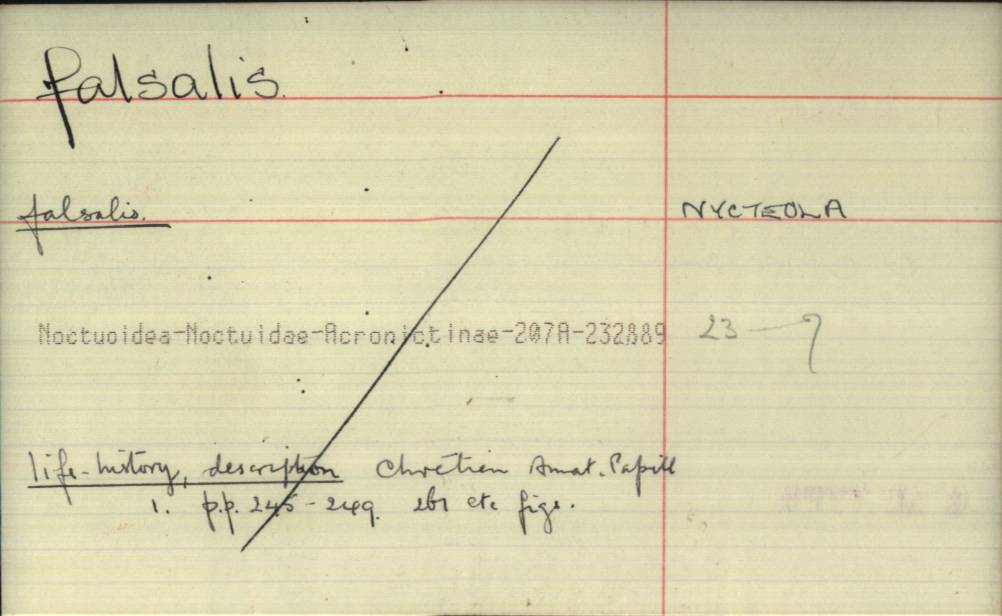 falsalis.
falsalis. NYCTEOLA
Noctuoidea-Noctuidae-Acronictinae-207A-232889 23 — ?
life-history, description Chrétien Amat. Papill
1. p.p. 245-249. 261 etc figs.